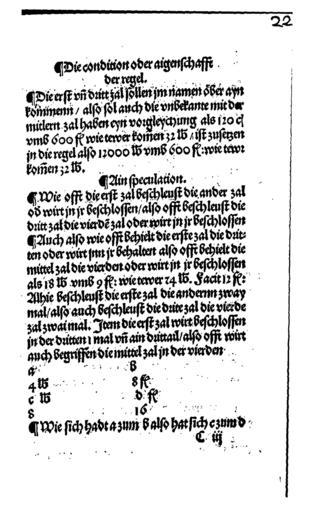 22
¶Die condition oder aigenschafft
der regel.
¶Die erst vñ dritt zal sollen jm namen ober ayn
kommenn / also sol auch die vnbekante mit der
mitlern zal haben eyn vorgleychung als 120 c
vmb 600 fl: wie tewer komen 32 lb / ist zusetzen
in die regel also 12000 lb vmb 600 fl: wie tewr
komen 32 lb.
¶Ain speculation.
¶Wie offt die erst zal beschleust die ander zal
od wirt jn jr beschlossen / also offt beschleust die
drit zal die vierdē zal oder wirt jn jr beschlossen
¶Auch also wie offt behielt die erste zal die drit
ten oder wirt jnn jr behalten also offt behielt die
mittel zal die vierden oder wirt jn jr beschlossen
als 18 lb vmb 9 fl: wie tewer 24 lb. Facit 12 fl:
Alhie beschleust die erste zal die anderm zway
mal / also auch beschleust die drite zal die vierde
zal zwai mal. Item die erst zal wirt beschlossen
jn der dritten 1 mal vñ ain dritail / also offt wirt
auch begriffen die mittel zal jn der vierden
a B
4 lb 8 fl:
c lb d fl:
8 16
¶Wie sich hadt a zum B also hat sich c zum d
C iij